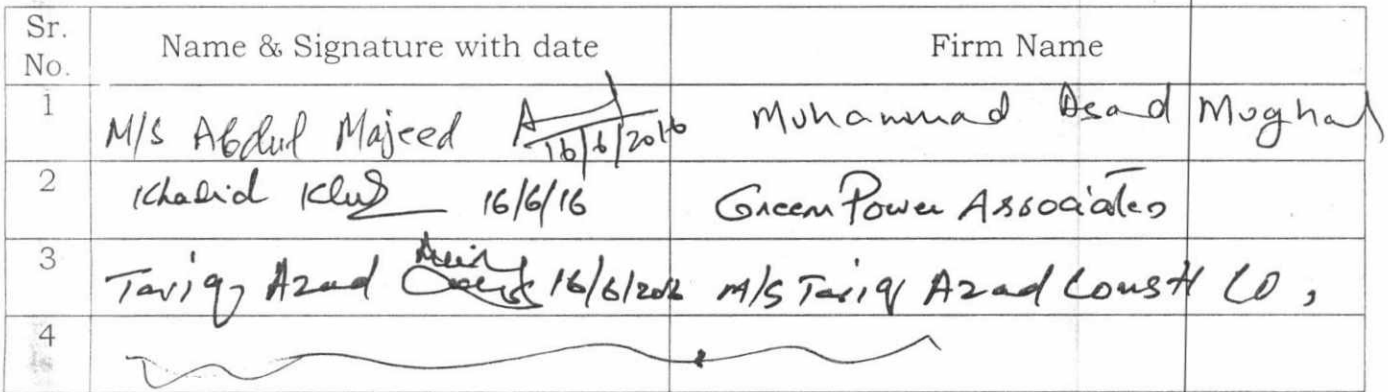 Sr. No. Name & Signature with date Firm Name
1 M/S Abdul Majeed 16/6/2016 Muhammad Asad Mughal
2 Khalid 16/6/16 Green Power Associates
3 Tariq Azad 16/6/2016 M/S Tariq Azad Const Co,
4